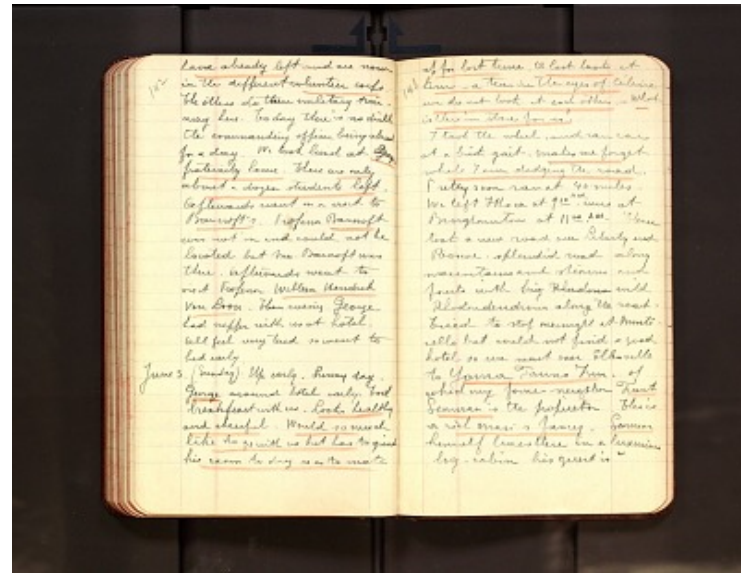 102
have already left and are now
in the different volunteer corps
The others do their military train-
ing here. To day there is no drill
the commanding officer being absent
for a day. We took lunch at
fraternity house. There are only
about a dozen students left.
Afterwards went on a visit to
Bancroft's. Professor Bancroft
was not in and could not be
located but Mrs Bancroft was
there. Afterwards went to
visit Professor Wilhem Hendrik
Van Loon. Then evening George
had supper with us at hotel.
All feel very tired so went to
bed early
June 3. (Sunday) Up early. Rainy day.
George around hotel early. Took
breakfast with us. Looks healthy
and cheerful. Would so much
like to go with us but has to give
his exam to day so as to make
103
up for lost time. At last look at
him - a tear in the eyes of Celine
we do not look at each other. What
is there in store for us?
I took the wheel and ran car
at a brisk gait. makes me forget
while I am dodging the road.
Pretty soon ran at 40 miles.
We left Ithaca at 9
Binghamton at 11 Then
took a new road via Liberty and
splendid road along
mountains and streams and
forests with big wild
Rhododendrons along the road.
Tried to stop overnight at Monti-
cello but could not find a good
hotel so we went over Ellenville
to Yama Farms Inn, of
which my former neighbor Frank
Seaman is the proprietor. This is
a rich man's fancy. Seaman
himself lives there in a luxurious
log-cabin his guest is